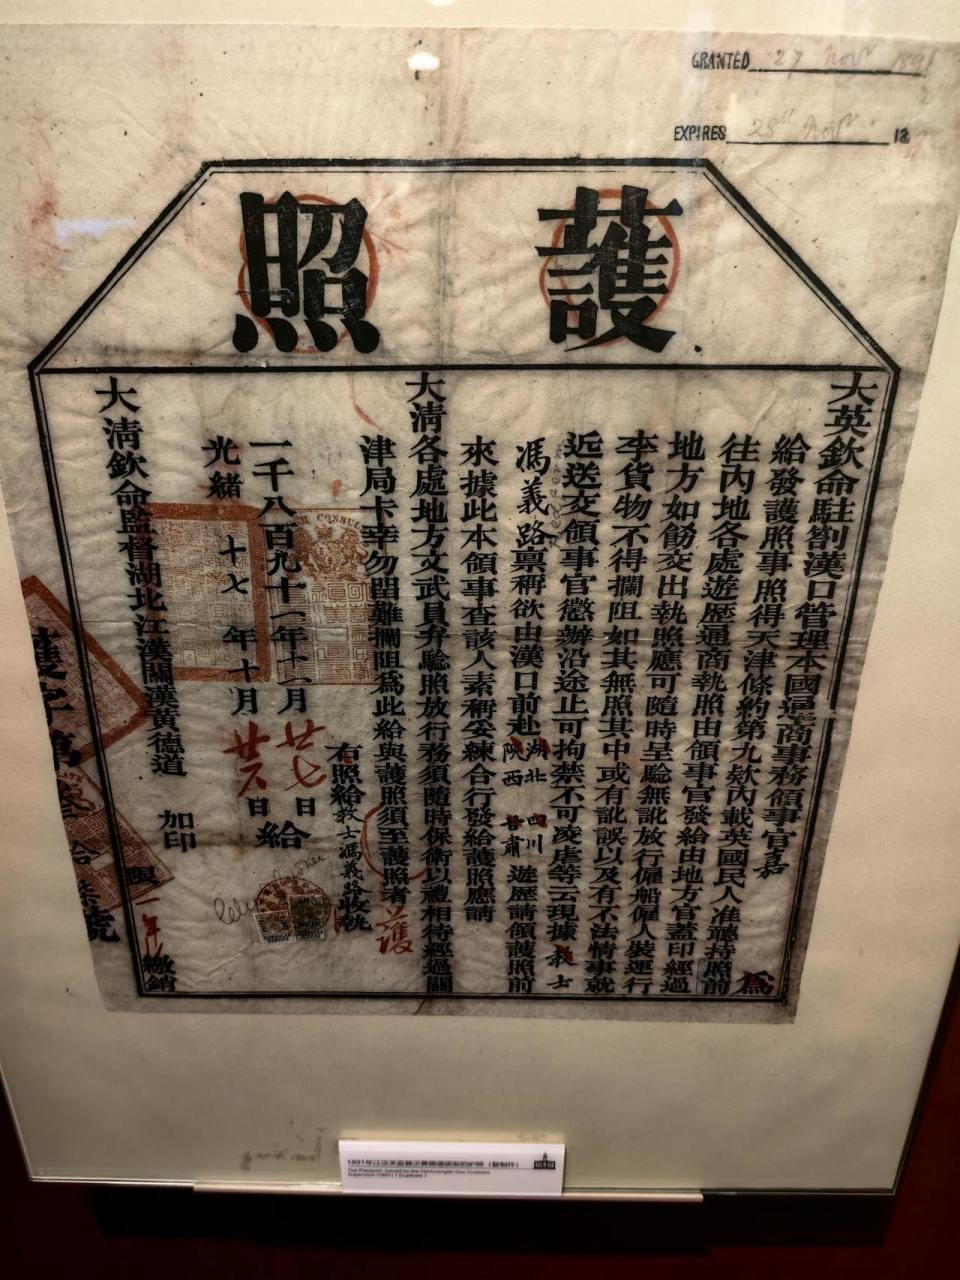 GRANTED 27 Novr 1891
EXPIRES 28th Novr 18
護照
大英欽命駐劄漢口管理本國通商事務領事官嘉 為
給發護照事照得天津條約第九欵內載英國民人准聽持照前
往內地各處遊歷通商執照由領事官發給由地方官蓋印經過
地方如飭交出執照應可隨時呈驗無訛放行僱船僱人裝運行
李貨物不得攔阻如其無照其中或有訛誤以及有不法情事就
近送交領事官懲辦沿途止可拘禁不可凌虐等云現據教士
馮義路稟稱欲由漢口前赴湖北陝西四川甘肅遊歷請領護照前
來據此本領事查該人素稱妥練合行發給護照應請
大清各處地方文武員弁驗照放行務須隨時保衛以禮相待經過關
津局卡幸勿留難攔阻為此給與護照須至護照者
護
右照給教士馮義路收執
一千八百九十一年十一月廿七日給
光緒十七年十月廿六日
大清欽命監督湖北江漢關漢黃德道 加印
限一年繳銷
1891年江汉关监督汉黄德道颁发的护照（复制件）